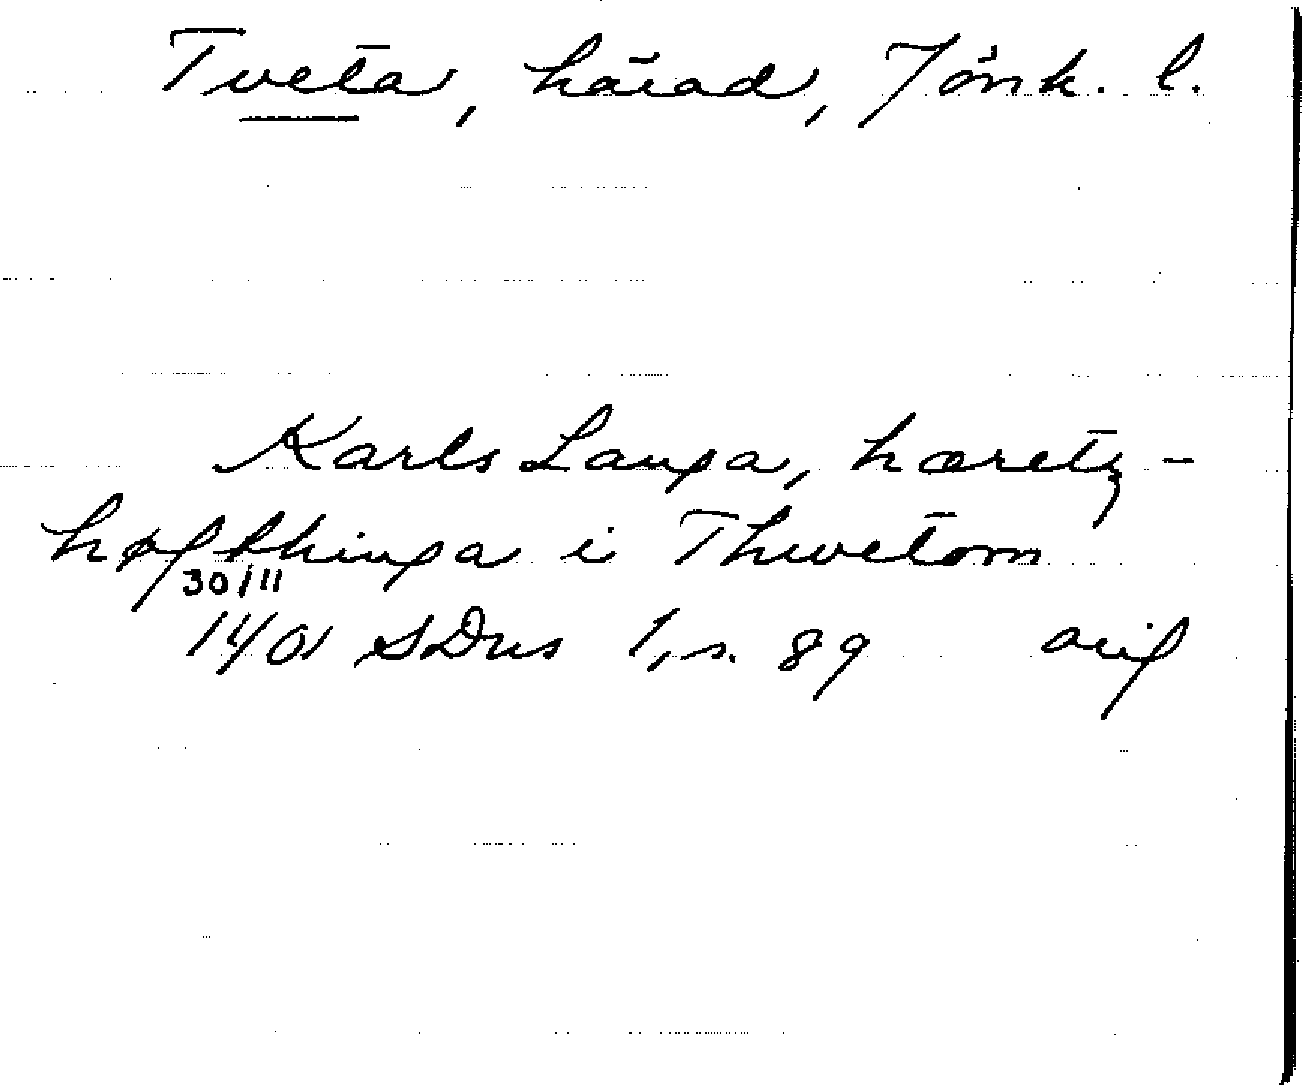 Tveta, härad, Jönk. l.
Karls Lanpa, hæretz-
høfthinga i Thwetom
30/11
1401 SDns 1, s. 89 orig